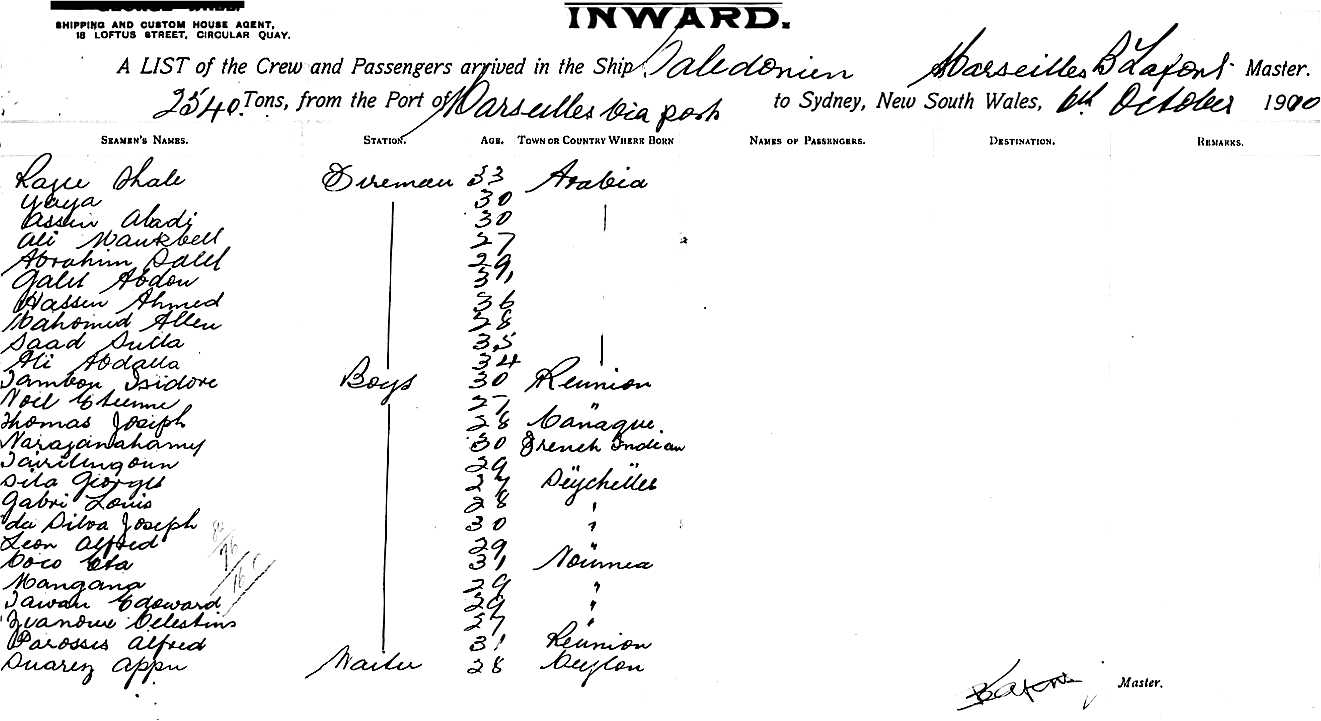 SHIPPING AND CUSTOM HOUSE AGENT,
18 LOFTUS STREET, CIRCULAR QUAY.
INWARD.
A LIST of the Crew and Passengers arrived in the Ship Caledonien Marseilles B Lafont Master.
2540 Tons, from the Port of Marseilles via ports to Sydney, New South Wales, 6th October 1900
SEAMEN'S NAMES. STATION. AGE. TOWN OR COUNTRY WHERE BORN NAMES OF PASSENGERS. DESTINATION. REMARKS.
Fireman 33 Arabia
Yaya 30
Assin Abadi 30
Ali Maukbell 27
Abrahim Saleh 29
Galet Abdou 31
Hassen Ahmed 36
Mahomed Allen 28
Saad 35
Ali Abdalla 34
Tambon Isidore Boys 30 Reunion
Noel Etienne 27 "
Thomas Joseph 28 Managua
30 French Indian
29 "
Georges 27 Seychelles
Gabri Louis 28 "
da Silva Joseph 30 "
Leon Alfred 29 "
Coco Eta 31 Noumea
Mangana 29 "
Tawan Edouward 29 "
Celestins 27 "
Parosses Alfred 31 Reunion
Suarez Appu Waiter 28 Ceylon
B Lafont Master.